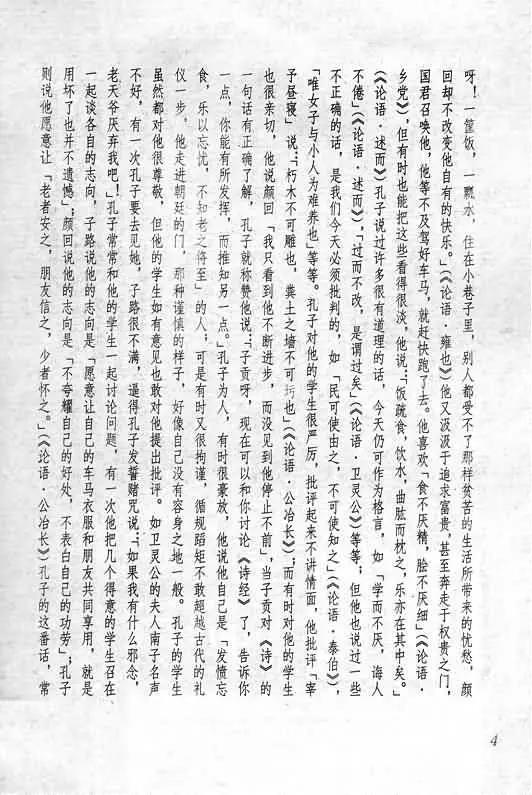 呀！一筐饭，一瓢水，住在小巷子里，别人都受不了那样贫苦的生活所带来的忧愁，颜
回却不改变他自有的快乐。”（《论语·雍也》）他又汲汲于追求富贵，甚至奔走于权贵之门，
国君召唤他，他等不及驾好车马，就赶快跑了去。他喜欢「食不厌精，脍不厌细」（《论语·
乡党》），但有时也能把这些看得很淡，他说：「饭疏食，饮水，曲肱而枕之，乐亦在其中矣。」
（《论语·述而》）孔子说过许多很有道理的话，今天仍可作为格言，如「学而不厌，诲人
不倦」（《论语·述而》），「过而不改，是谓过矣」（《论语·卫灵公》）等等；但他也说过一些
不正确的话，是我们今天必须批判的，如「民可使由之，不可使知之」（《论语·泰伯》），
「唯女子与小人为难养也」等等。孔子对他的学生很严厉，批评起来不讲情面，他批评「宰
予昼寝」说：「朽木不可雕也，粪土之墙不可圬也」（《论语·公冶长》）；而有时对他的学生
也很亲切，他说颜回「我只看到他不断进步，而没见到他停止不前」，当子贡对《诗》的
一句话有正确了解，孔子就称赞他说：「子贡呀，现在可以和你讨论《诗经》了，告诉你
一点，你能有所发挥，而推知另一点。」孔子为人，有时很豪放，他说他自己是「发愤忘
食，乐以忘忧，不知老之将至」的人；可是有时又很拘谨，循规蹈矩不敢超越古代的礼
仪一步，他走进朝廷的门，那种谨慎的样子，好像自己没有容身之地一般。孔子的学生
虽然都对他很尊敬，但他的学生如有意见也敢对他提出批评。如卫灵公的夫人南子名声
不好，有一次孔子要去见她，子路很不满，逼得孔子发誓赌咒说：「如果我有什么邪念，
老天爷厌弃我吧」！孔子常常和他的学生一起讨论问题，有一次他把几个得意的学生召在
一起谈各自的志向，子路说他的志向是「愿意让自己的车马衣服和朋友共同享用，就是
用坏了也并不遗憾」；颜回说他的志向是「不夸耀自己的好处，不表白自己的功劳」；孔子
则说他愿意让「老者安之，朋友信之，少者怀之。」（《论语·公冶长》）孔子的这番话，常
4